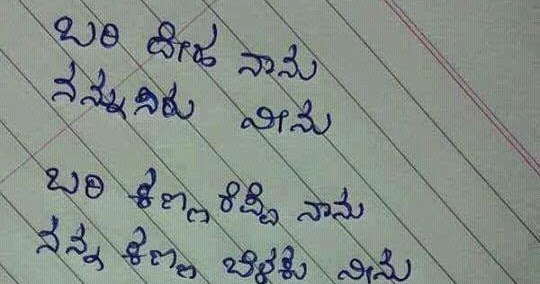 ಬರಿ ದೇಹ ನಾನು
ನನ್ನುಸಿರು ನೀನು
ಬರಿ ಕಣ್ಣ ರೆಪ್ಪೆ ನಾನು
ನನ್ನ ಕಣ್ಣ ಬೆಳಕು ನೀನು